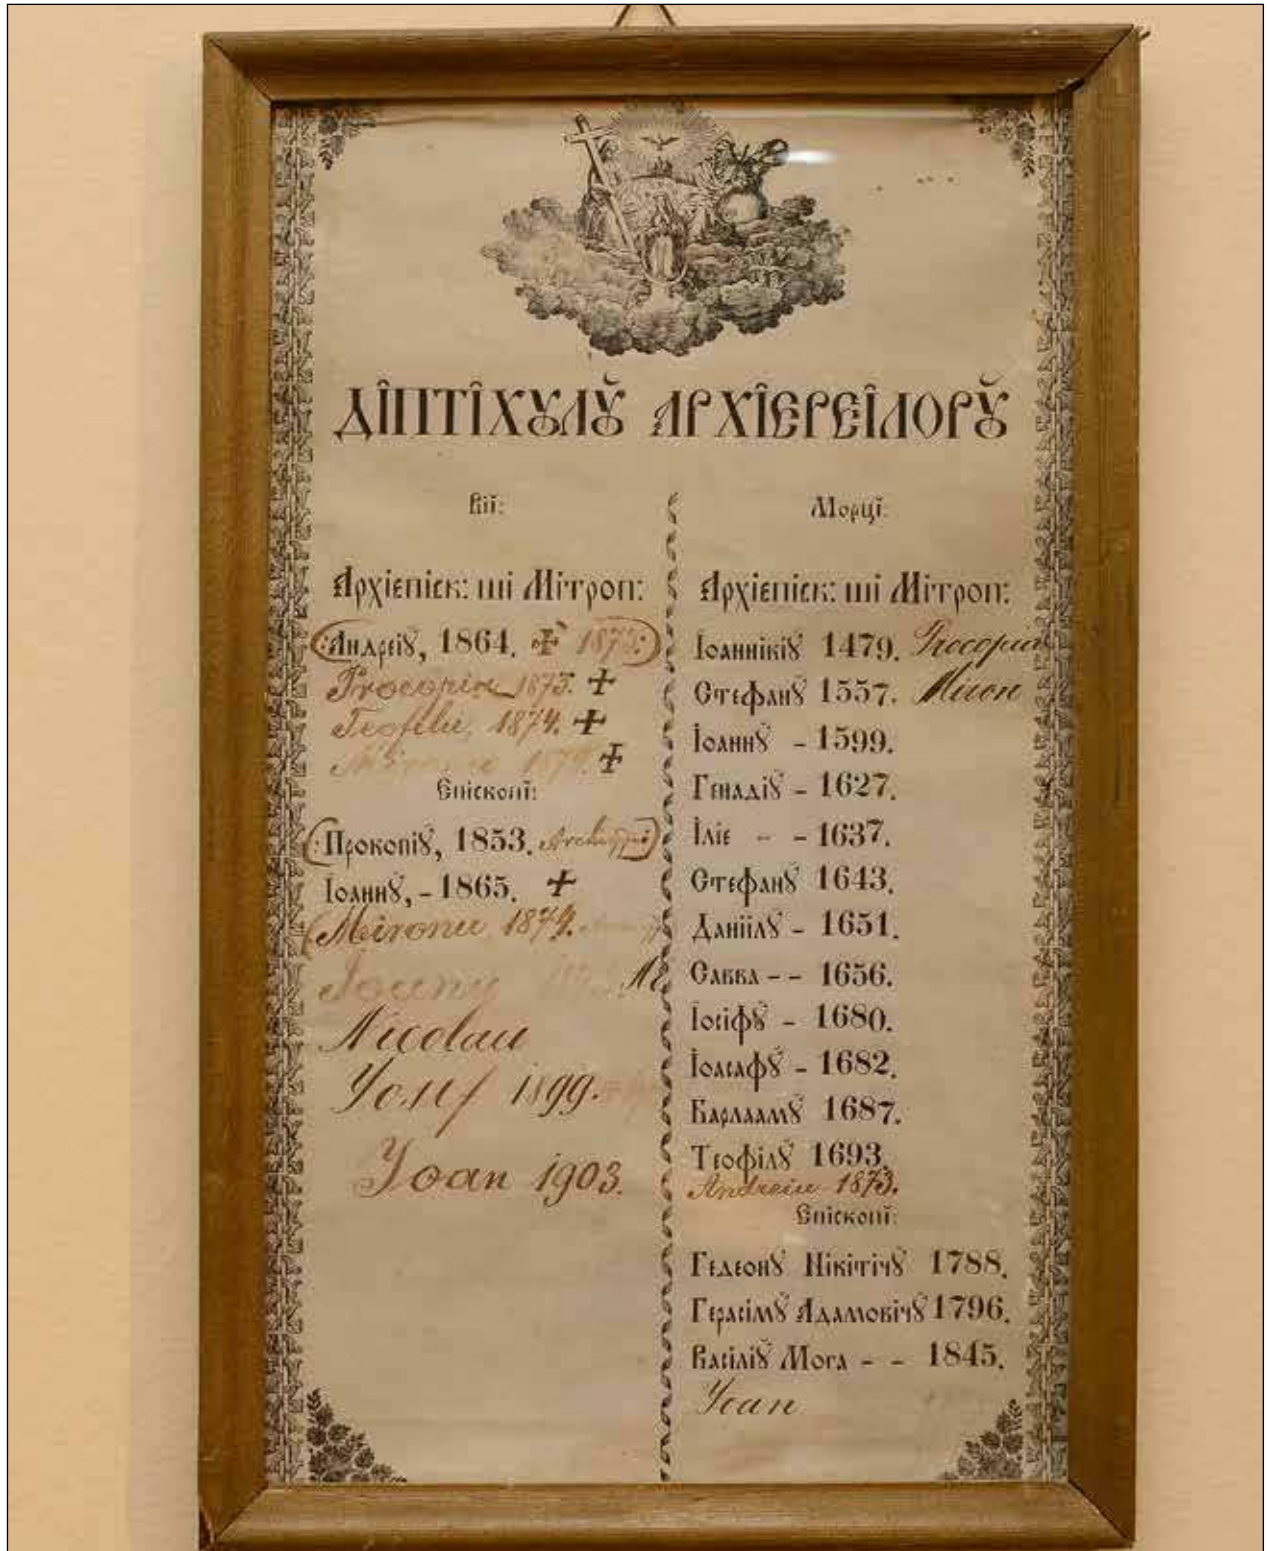 ДІПТІХꙋЛꙋ̆ АРХІЕРЕІЛОРꙋ̆
Вії:
Архіепіск: ші Мітроп:
(:Андреіꙋ̆, 1864. ✠ 1873:)
Procopiu 1873. +
Teofilu, 1874. +
1874. +
Епіскопї:
(:Прокопіꙋ̆, 1853.
Іоаннꙋ̆, - 1865. +
(Mironu 1874.
Ioanny
Nicolau
Yosif 1899.
Yoan 1903.
Морцї:
Архіепіск: ші Мітроп:
Іоаннікіꙋ̆ 1479. Procopiu
Стефанꙋ̆ 1557. Miron
Іоаннꙋ̆ - 1599.
Генадіꙋ̆ - 1627.
Іліе - - 1637.
Стефанꙋ̆ 1643.
Даніілꙋ̆ - 1651.
Савва - - 1656.
Іосіфꙋ̆ - 1680.
Іоасафꙋ̆ - 1682.
Варлаамꙋ̆ 1687.
Теофілꙋ̆ 1693.
Andreiu 1873.
Епіскопї:
Гедеонꙋ̆ Нікітічꙋ̆ 1788.
Герасімꙋ̆ Адамовічꙋ̆ 1796.
Васіліꙋ̆ Мога - - 1845.
Yoan